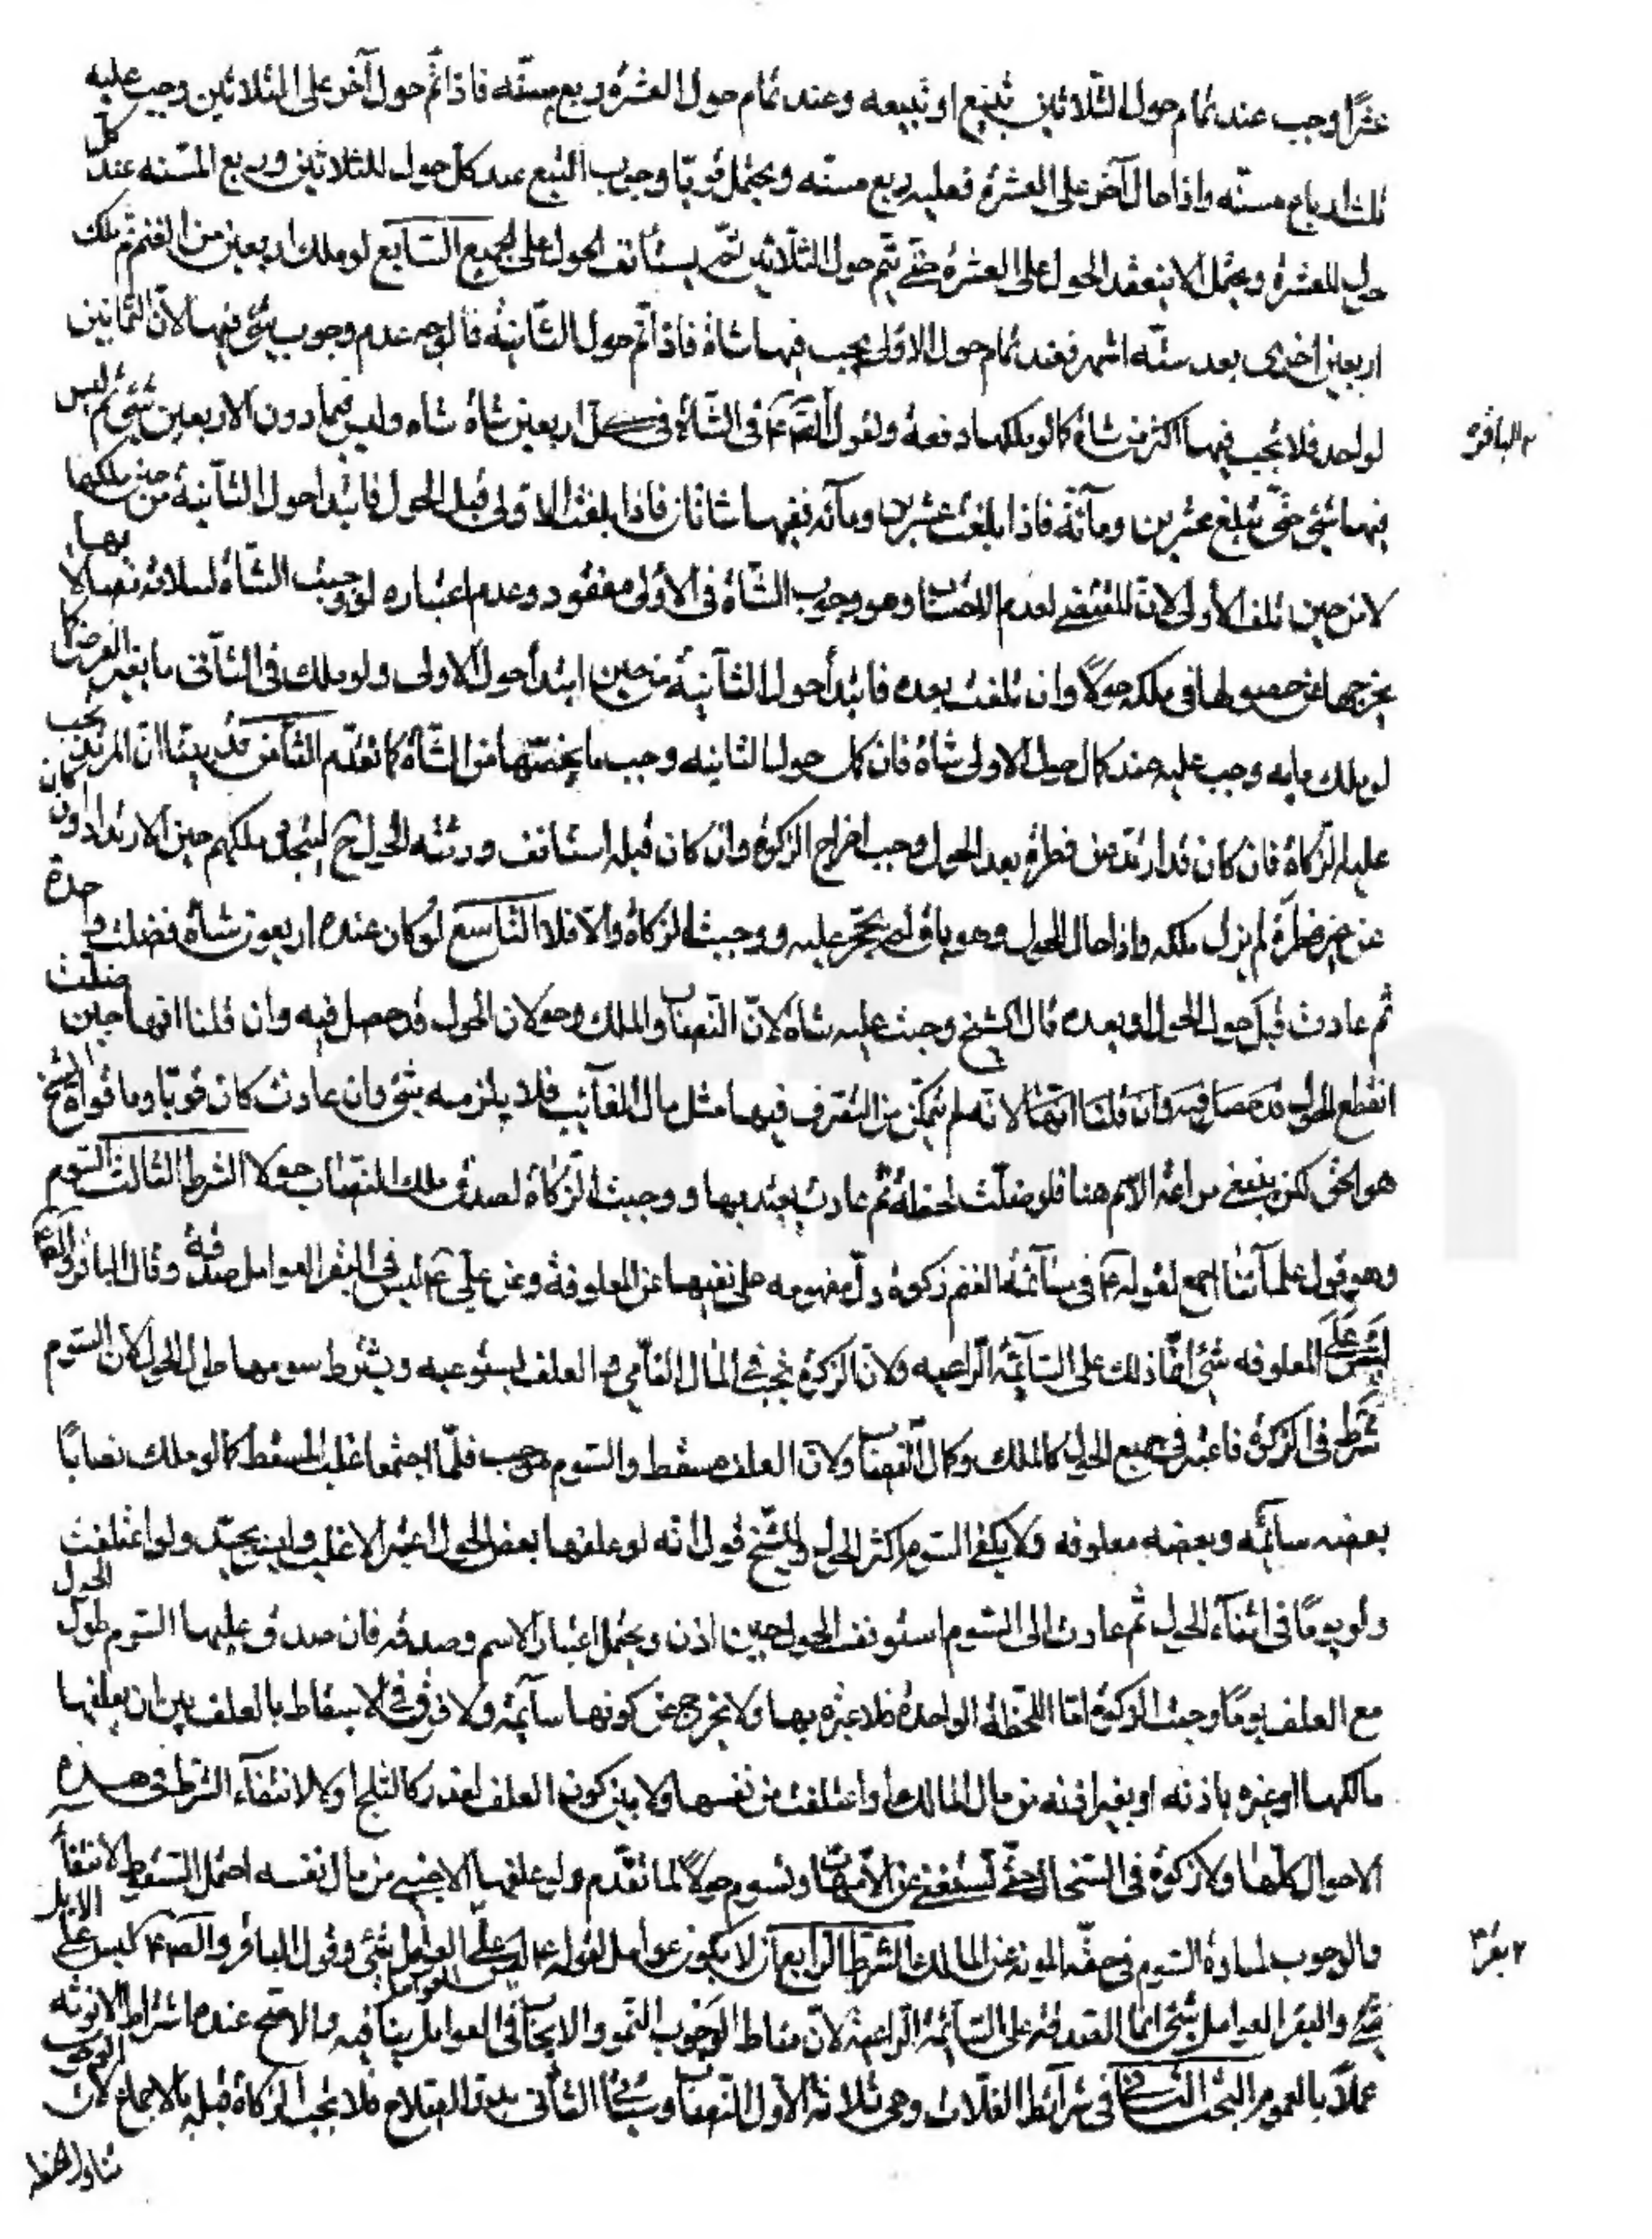 عشرًا وجب عند تمام حول الثلاثين تبيع او تبيعه وعند تمام حول العشرة ربع مسنّه فاذا تمّ حول آخر على الثلاثين وجب عليه
ثلثة ارباع مسنّه واذا حال آخر على العشرة فعليه ربع مسنّه ويحتمل قويّا وجوب التبيع عند كل حول للثلاثين وربع المسنّه عند كل
حول للعشرة ويحتمل الا ينعقد الحول على العشرة حتى يتم حول الثلاثين ثم يستأنف الحول على الجميع السّابع لو ملك اربعين من الغنم ثم ملك
اربعين اخرى بعد ستّه اشهر فعند تمام حول الاولى يجب فيها شاة فاذا تم حول الثّانية فالوجه عدم وجوب شئ فيها لانّ الثمانين
لواحد فلا يجب فيها اكثر من شاة كما لو ملكها دفعة ولقول الصّ ع في الشّاة في كل اربعين شاة شاه وليس فيما دون الاربعين شئ ثم ليس
الباقر
فيها شئ حتّى تبلغ عشرين ومائة فاذا بلغت عشرين ومائه ففيها شاتان فاذا بلغت الاولى قبل الحول فابتدا حول الثّانية من حين ملكها
لا من حين تلف الأولى لانّ المقتضى لعدم النصاب وهو وجوب الشّاة في الأولى مفقود وعدم اعتباره لو وجبت الشّاة لسلاته نصابا بها
يخرجها عن حصولها في ملكه حولاً وان تلفت بعده فابتدأ حول الثّانية من حين ابتدأ حول الاولى ولو ملك في الثّاني ما يغير الفرض كما
لو ملك مايه وجب عليه عند كمال حول الاولى شاة فان كمل حول الثانيه وجب ما يخصّها من الشّاة كما تقدّم الثّامن قد بيّنّا انّ المرتد يجب
عليه الزكاة فان كان قد ارتدّ عن فطرة بعد الحول وجب اخراج الزكوة وان كان قبله استانف ورثته الحول ح لتجدد ملكهم حين الارتداد وان كان
عن غير فطرة لم يزل ملكه واذا حال الحول وهو باق لم يحجّر عليه ووجبت الزكاة والّا فلا التّاسع لو كان عنده اربعون شاة فضلت واحدة
ثم عادت قبل حول الحول او بعده قال الشيخ وجبت عليه شاة لانّ النّصاب والملك وحولان الحول قد حصل فيه وان قلنا انها حين ضلّت
انقطع الحول لانّه لم يتمكّن من التصرف فيها مثل مال الغآئب فلا يلزمه شئ وان عادت كان قويّا وما قوّاه الشيخ
هو الحق لكن ينبغى مراعة الاسم هنا فلو ضلّت لحظة ثم عادت يعتد بها ووجبت الزكاة لصدق ملك النّصاب حولا الشرط الثالث السّوم
وهو قول علمآئنا اجمع لقوله ع في سآئمة الغنم زكوة دلّ مفهومه على نفيها عن المعلوفة وعن عليّ ع ليس في البقر العوامل صدقة وقال الباقر والصّ ع
ليس على المعلوفه شئ انّما ذلك على السّآئمة الرّاعيه ولانّ الزكوة تجب في المال النّامى والعلف يستوعبه ويشترط سومها طول الحول لانّ السّوم
شرط في الزكوة فاعتبر في جميع الحول كالملك وكمال النّصاب ولانّ العلف مسقط والسّوم موجب فلمّا اجتمعا غلب المسقط كما لو ملك نصابًا
بعضه سآئمه وبعضه معلوفه ولا يكفى السّوم اكثر الحول وللشّيخ قول انّه لو علفها بعض الحول اعتبر الاغلب وليس بجيّد ولو اعتلفت
ولو يومًا في اثنآء الحول ثم عادت الى السّوم استونف الحول حين اذن ويحتمل اعتبار الاسم وصدقه فان صدق عليها السّوم طول الحول
مع العلف يومًا وجبت الزكوة امّا اللّحظة الواحدة فلا عبرة بها ولا تخرج عن كونها سآئمة ولا فرق في الاسقاط بالعلف بين ان يعلفها
مالكها او غيره باذنه او بغير اذنه من مال المالك او اعتلفت من نفسها ولا بين كون العلف لعذر كالثلج او لا لانتفآء الشرط في هذه
الاحوال كلّها ولا زكوة في السّخال حتّى تستغنى عن الأمّهات وتسوم حولاً لما تقدّم ولو علفها الاجنبى من مال نفسه احتمل السّقوط لانتفآ
والوجوب لمساواة السّوم في خفّه المونه عن المالك الشرط الرّابع ان لا يكون عوامل لقوله ع ليس على العوامل شئ وقول الباقر والصّ ع ليس على الابل
بقر
شئ والبقر العوامل شئ انما الصدقة على السّآئمة الرّاعية لانّ مناط الوجوب النّمو والايجاف العوامل ينافيه والاصح عنده اشتراط الانوثه
عملاً بالعموم البحث الثانى في شرآئط الغلات وهى ثلاثة الأوّل النّصاب وسيأتى الثّانى بدوّ الصّلاح فلا تجب الزكاة قبله بالاجماع لانّ الوجوب